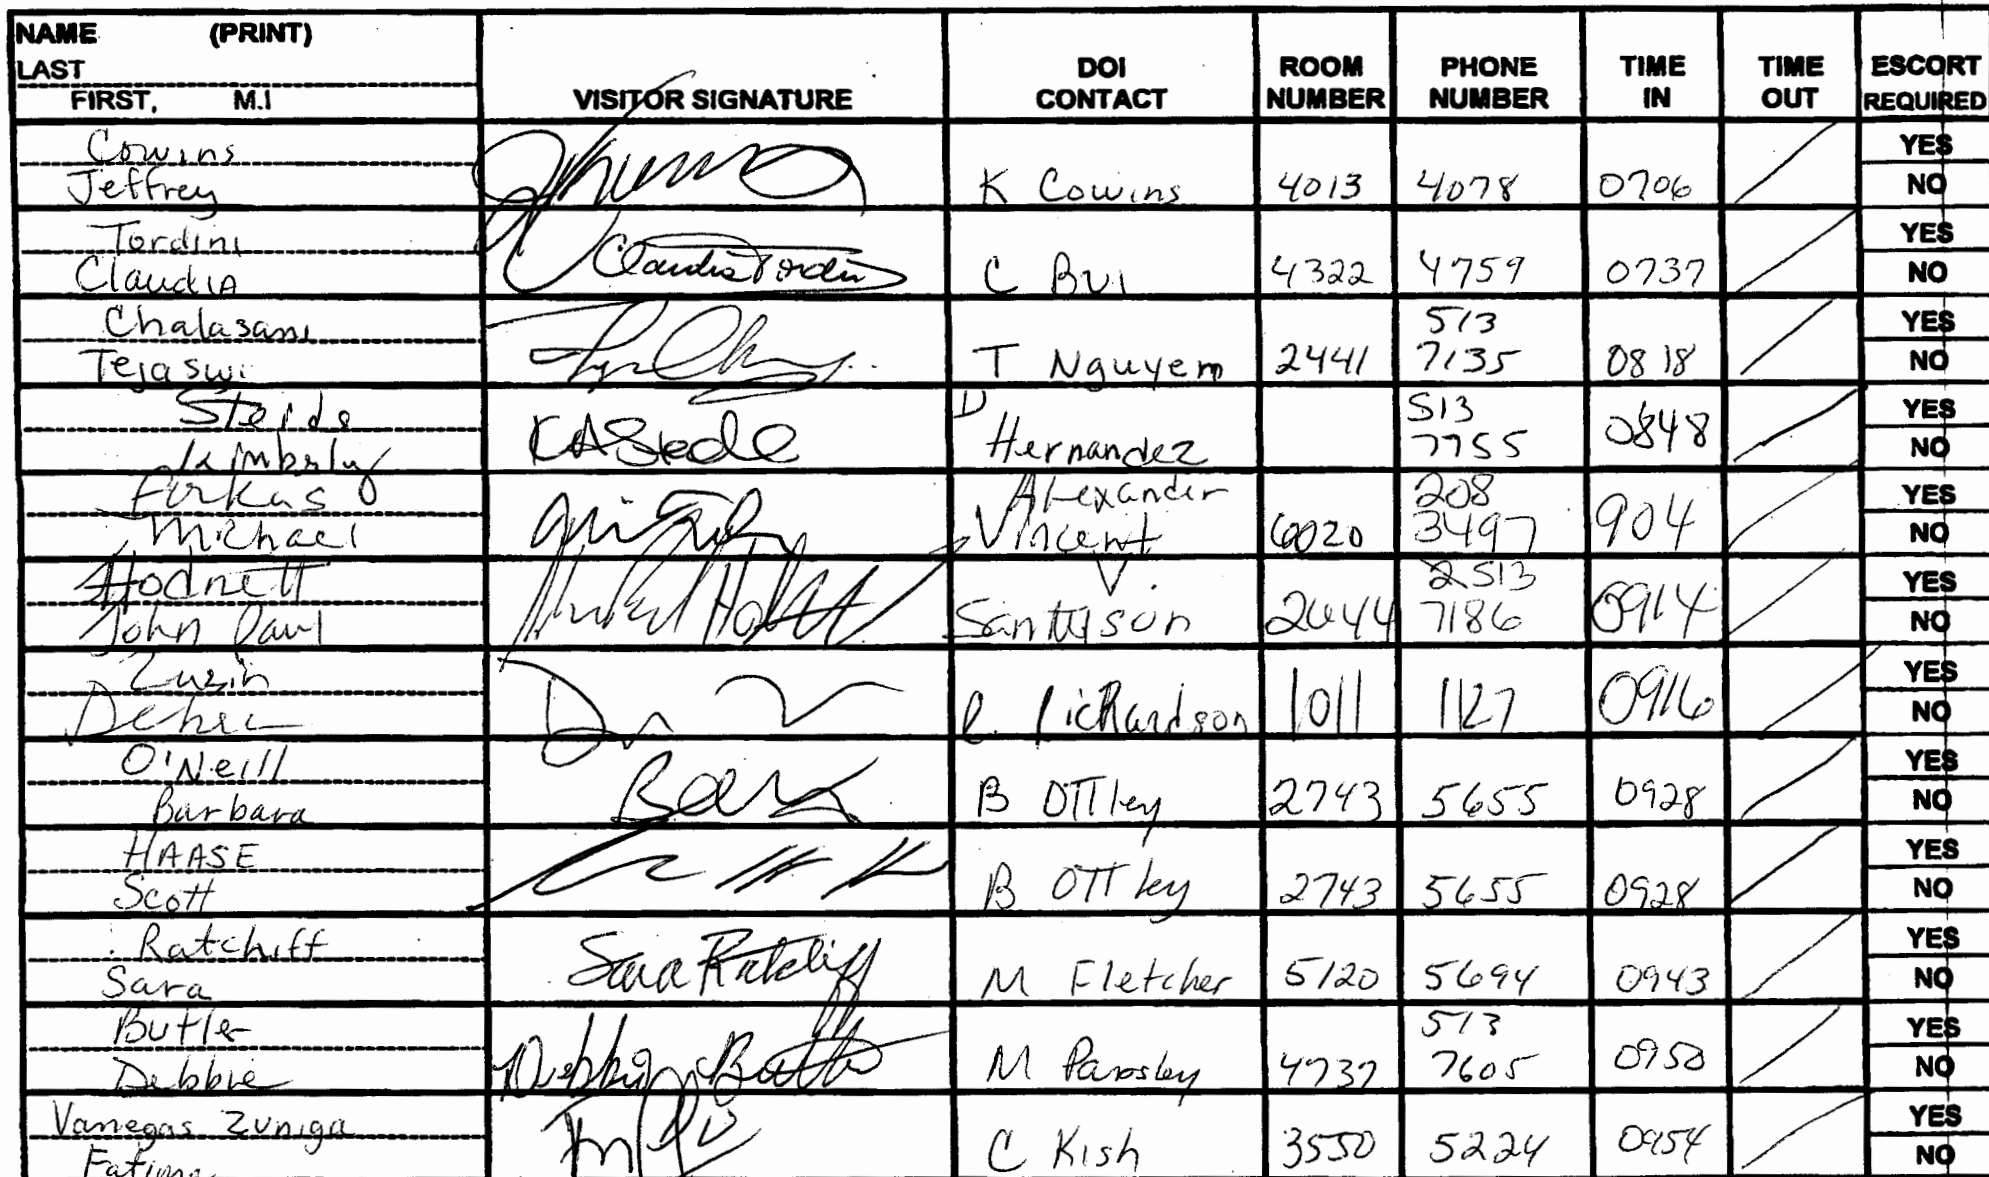 NAME (PRINT)
LAST
FIRST, M.I
VISITOR SIGNATURE
DOI
CONTACT
ROOM
NUMBER
PHONE
NUMBER
TIME
IN
TIME
OUT
ESCORT
REQUIRED
Cowins
Jeffrey
K Cowins 4013 4078 0706
YES
NO
Tordini
Claudia
Claudia Tordini
C Bui 4322 4759 0737
YES
NO
Chalasani
Tejaswi
T Nguyem 2441
513
7135
0818
YES
NO
Steide
Kimberly
D
Hernandez
513
7755
0848
YES
NO
Michael
Alexander
Vincent
6020
208
3497
904
YES
NO
Hodnett
John Paul
V.
2644
2513
7186
0914
YES
NO
Zuzin
Richardson 1011 1127 0916
YES
NO
O'Neill
Barbara
Barb
B Ottley 2743 5655 0928
YES
NO
HAASE
Scott
B Ottley 2743 5655 0928
YES
NO
Ratchiff
Sara
Sara Ratcliff
M Fletcher 5120 5694 0943
YES
NO
Butler
Debbie
Debbie Butler
M Parsley 4737
513
7605
0950
YES
NO
Vanegas Zuniga
Fatima
C Kish 3550 5224 0954
YES
NO